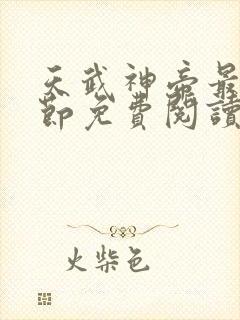 天武神帝最
節免費閱讀
火柴色